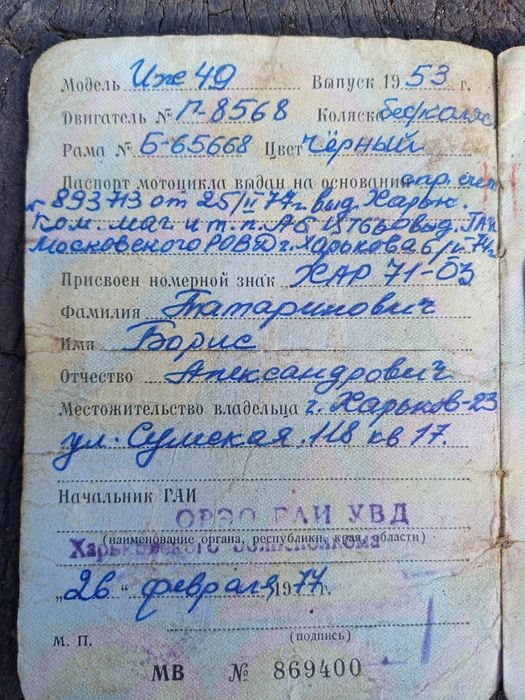 Модель Иж 49 Выпуск 1953 г.
Двигатель № П-8568 Коляска без/коляс
Рама № Б-65668 Цвет Чёрный
Паспорт мотоцикла выдан на основании спр. счет
893713 от 25/II 77г. выд. Харьк.
Ком. маг. и т.п. АБ выд. ГАИ
Московского РОВД г. Харькова
Присвоен номерной знак ХАР 71-03
Фамилия Татаринович
Имя Борис
Отчество Александрович
Местожительство владельца г. Харьков-23
ул. Сумская 118 кв 17.
Начальник ГАИ
ОРЭО ГАИ УВД
(наименование органа, республики, края, области)
Харьковского облисполкома
„26“ февраля 1977 г.
(подпись)
М. П.
МВ № 869400